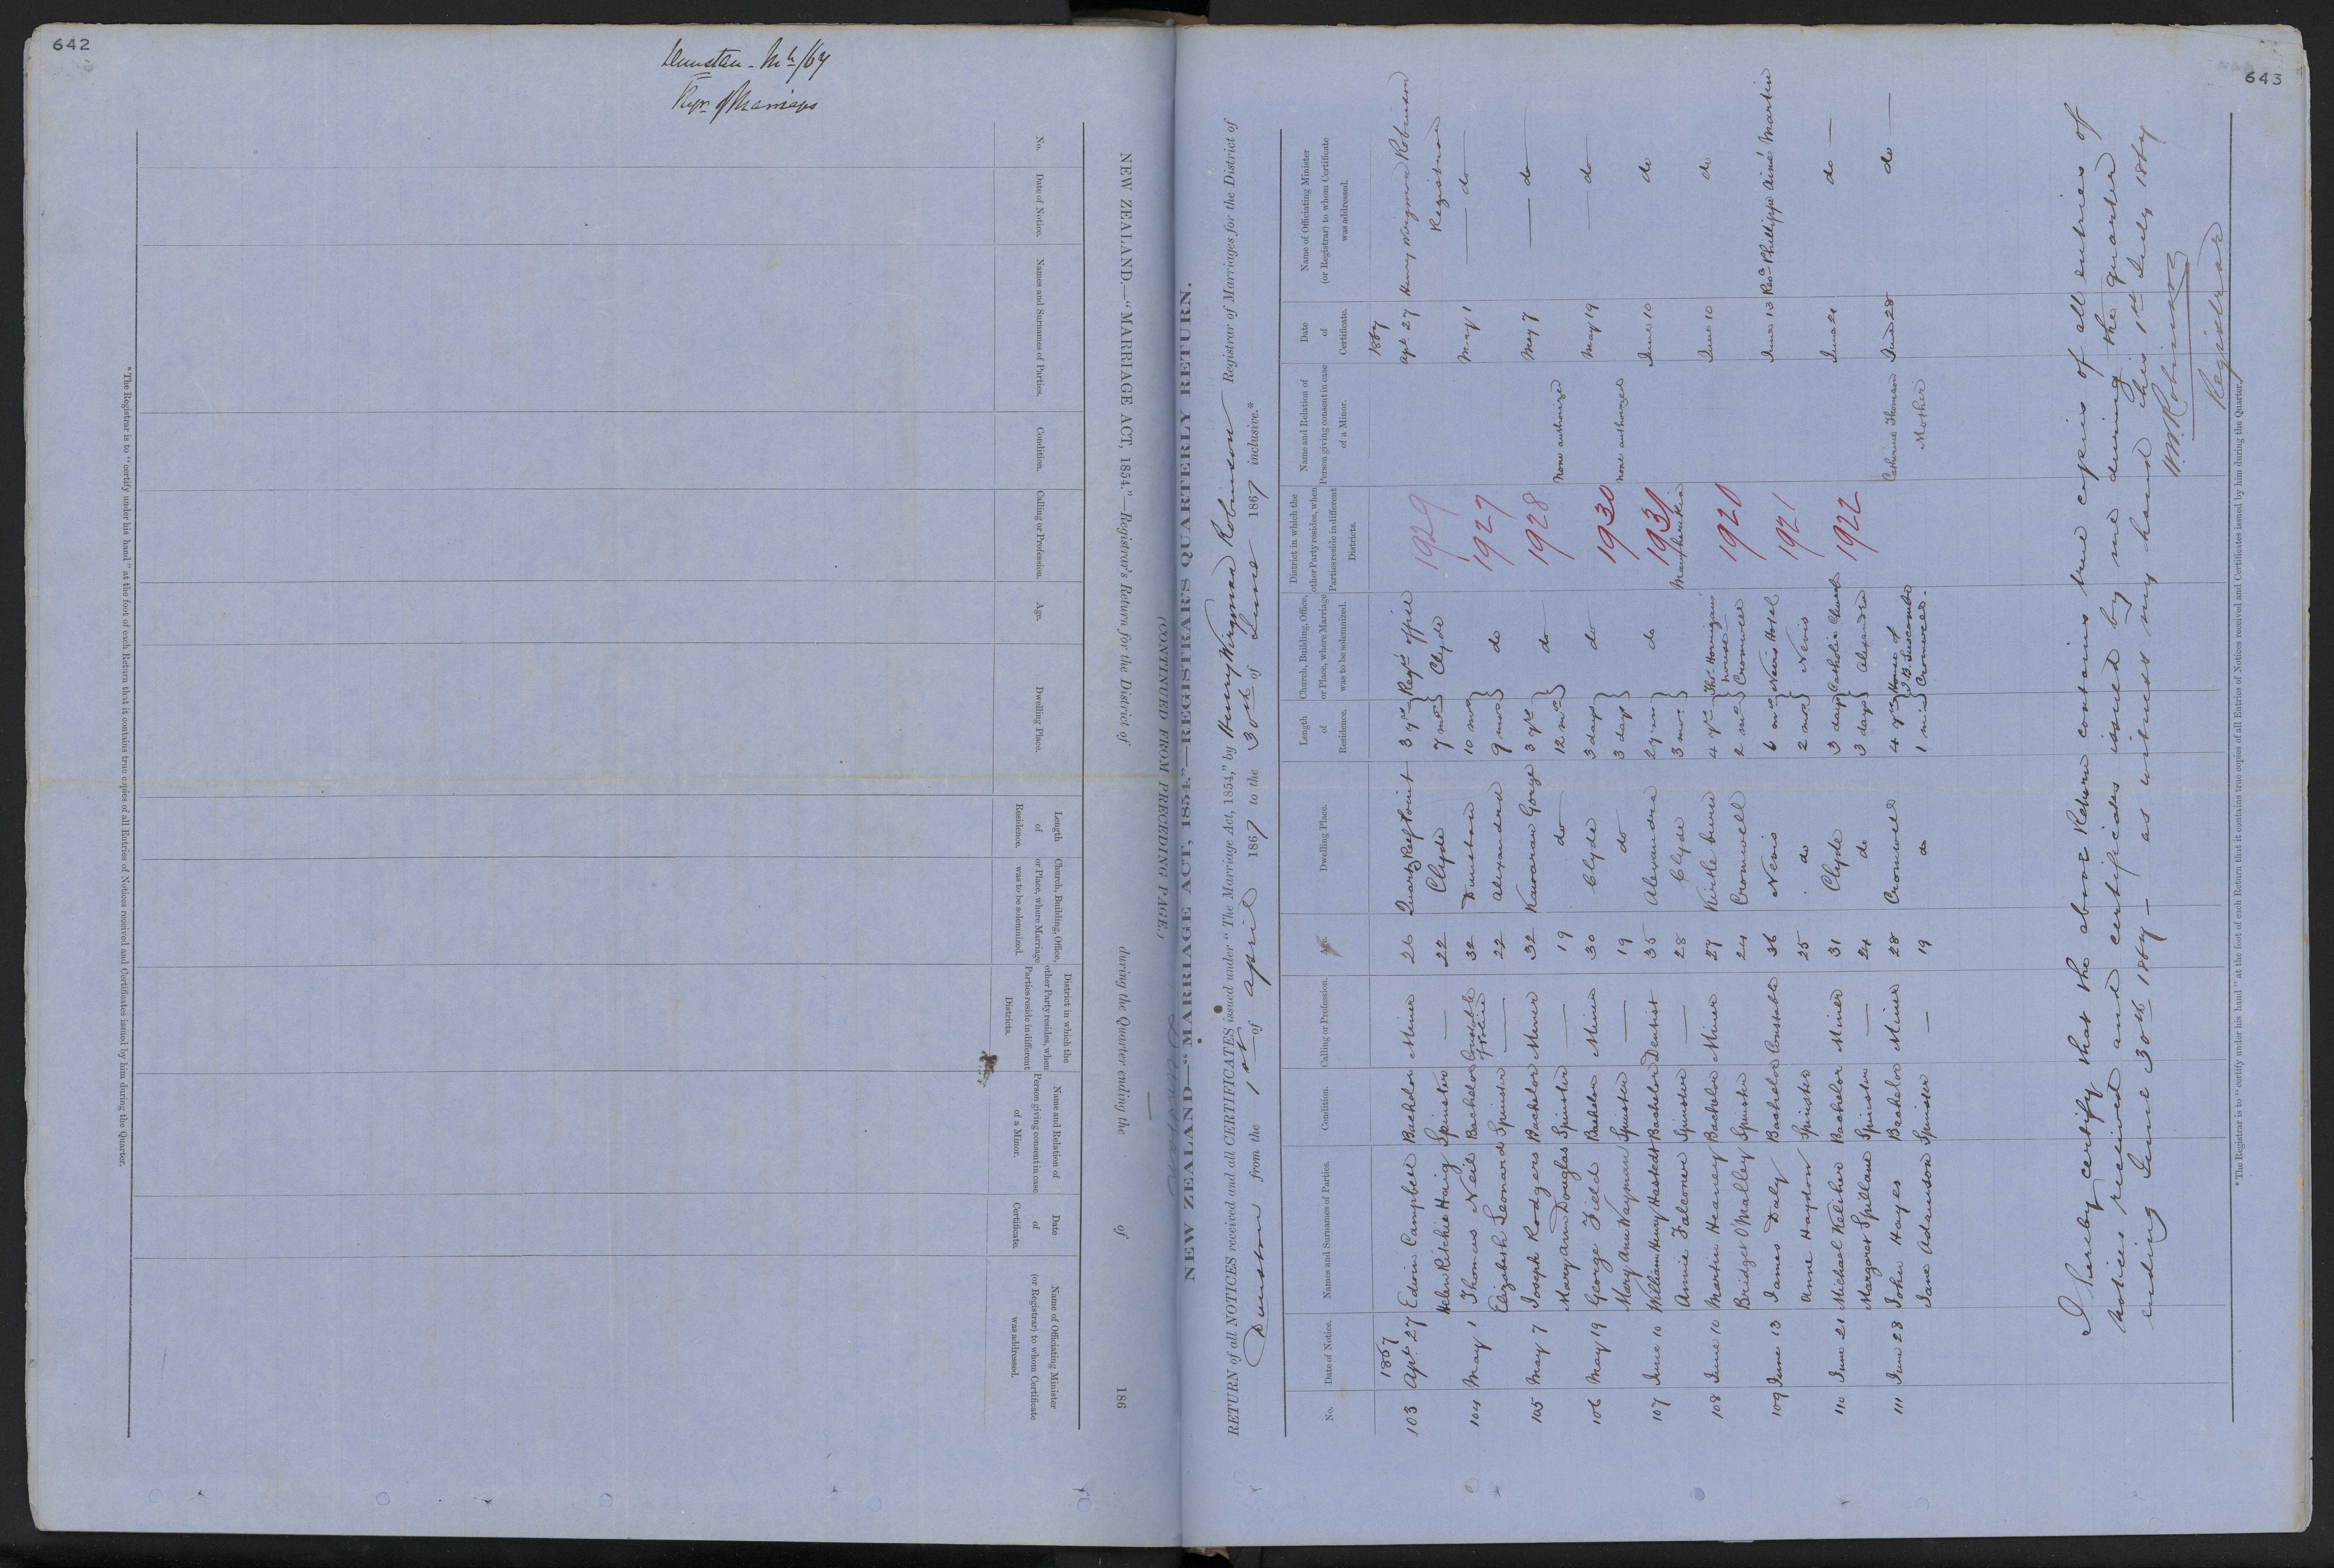 642
Dunstan
Regr of Marriages
* The Registrar is to "certify under his hand" at the foot of each Return that it contains true copies of all Entries of Notices received and Certificates issued by him during the Quarter.
(CONTINUED FROM PRECEDING PAGE.)
NEW ZEALAND.—"MARRIAGE ACT, 1854."—Registrar's Return for the District of during the Quarter ending the of 186
No. Date of Notice. Names and Surnames of Parties. Condition. Calling or Profession. Age. Dwelling Place. Length of Residence. Church, Building, Office, or Place, where Marriage was to be solemnized. District in which the other Party resides, when Parties reside in different Districts. Name and Relation of Person giving consent in case of a Minor. Date of Certificate. Name of Officiating Minister (or Registrar) to whom Certificate was addressed.
643
NEW ZEALAND—"MARRIAGE ACT, 1854."—REGISTRAR'S QUARTERLY RETURN.
RETURN of all NOTICES received and all CERTIFICATES issued under "The Marriage Act, 1854," by Henry Wirgman Robinson Registrar of Marriages for the District of
Dunstan from the 1st of April 1867 to the 30th of June 1867 inclusive.*
No. Date of Notice. Names and Surnames of Parties. Condition. Calling or Profession. Age. Dwelling Place. Length of Residence. Church, Building, Office, or Place, where Marriage was to be solemnized. District in which the other Party resides, when Parties reside in different Districts. Name and Relation of Person giving consent in case of a Minor. Date of Certificate. Name of Officiating Minister (or Registrar) to whom Certificate was addressed.
1867 1867
103 Apl. 27 Edwin Campbell Bachelor Miner 26 Quartz Reef Point 3 yrs Regrs office 1929 Apl 27 Henry Wirgman Robinson
Helen Ritchie Haig Spinster — 22 Clyde 7 mos Clyde Registrar
104 May 1 Thomas Neil Bachelor Constable Police 32 Dunstan 10 mos do 1927 May 1 — do —
Elizabeth Leonard Spinster — 22 Alexandra 9 mos
105 May 7 Joseph Rodgers Bachelor Miner 32 Kawarau Gorge 3 yrs do 1928 May 7 — do —
Mary Ann Douglas Spinster — 19 do 12 mos None authorized
106 May 19 George Field Bachelor Miner 30 Clyde 3 days do 1930 May 19 — do —
Mary Ann Wayman Spinster — 19 do 3 days none authorized
107 June 10 William Henry Hastedt Bachelor Dentist 35 Alexandra do 1931 June 10 do
Annie Falconer Spinster — 28 Clyde 3 mos
108 June 10 Martin Heaney Bachelor Miner 27 4 yrs Thos Horrigans house 1920 June 10 do
Bridget O'Malley Spinster 24 Cromwell 2 mos Cromwell
109 June 13 James Daly Bachelor Constable 36 Nevis 6 mos Nevis Hotel 1921 June 13 Revd Phillippe Aimé Martin
Anne Haydon Spinster 25 do 2 mos Nevis
110 June 21 Michael Keliher Bachelor Miner 31 Clyde 3 days Catholic Church 1922 June 21 do —
Margaret Spillane Spinster — 24 do 3 days Alexandra
111 June 28 John Hayes Bachelor Miner 28 Cromwell 4 yrs House of J. B. Luscombe Catherine Thomson June 28 do —
Jane Adamson Spinster — 19 do Cromwell. Mother
I hereby certify that the above Return contains true copies of all entries of
notices received and certificates issued by me during the quarter
ending June 30th 1867 — as witness my hand this 1st July 1867
H.W. Robinson
Registrar
* The Registrar is to "certify under his hand" at the foot of each Return that it contains true copies of all Entries of Notices received and Certificates issued by him during the Quarter.